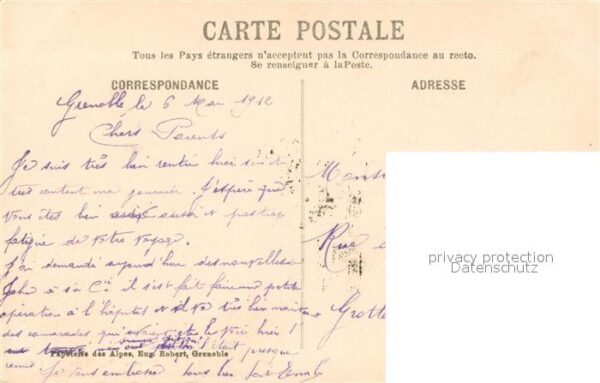 CARTE POSTALE
Tous les Pays étrangers n'acceptent pas la Correspondance au recto.
Se renseigner à laPoste.
CORRESPONDANCE
ADRESSE
Grenoble le 6 Mai 1912
Chers Parents
Je suis très bien rentré hier soir et
très content ma journée. J'espère que
vous êtes bien aussi et pas trop
fatigué de votre voyage.
J'ai demandé aujourd'hui des nouvelles a
à sa Cie il s'est fait faire une petite
opération à l'hôpital et il va très bien
des camarades qui le voir hier
il était presque
Je vous embrasse tous bien fort
Rue
Papeterie des Alpes, Eug. Robert, Grenoble
privacy protection
Datenschutz